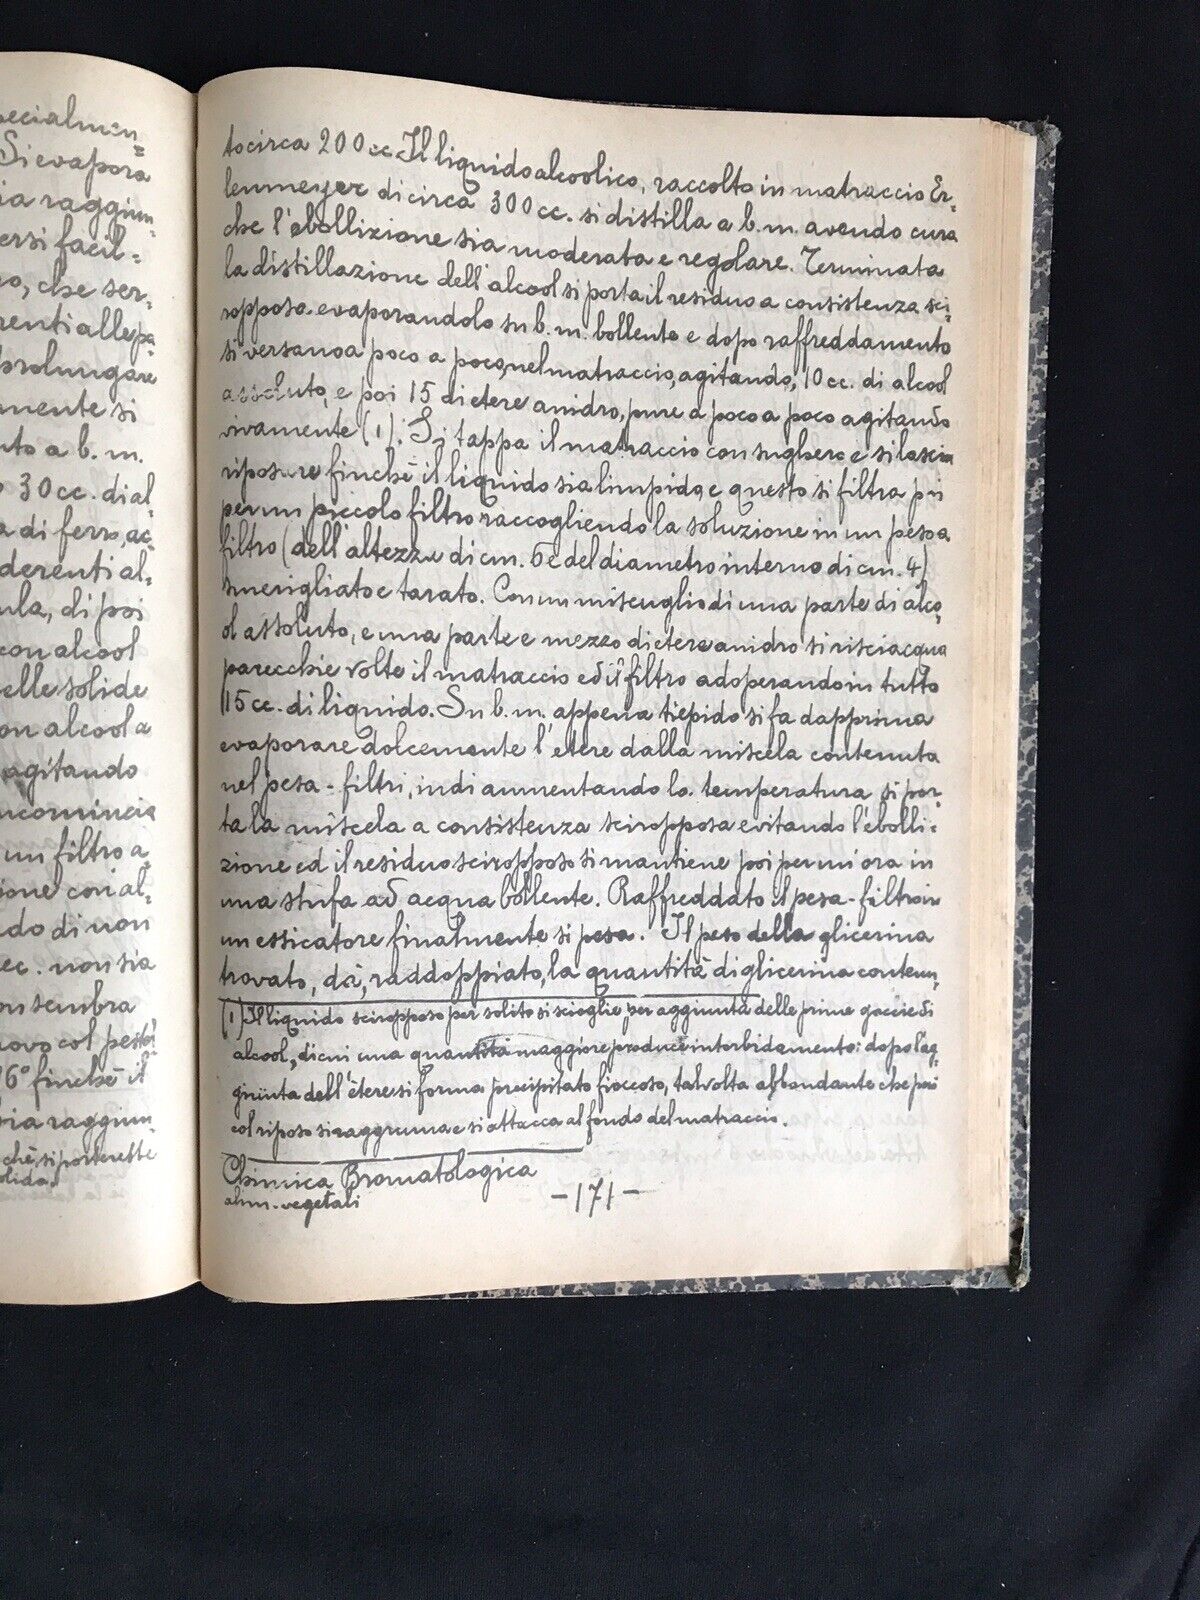 pecialmen=
Si evapora
ia raggiun=
ersi facil=
o, che ser=
renti alle pa=
prolungare
mente si
uto a b. m.
30 cc. di al
a di ferro, ac=
derenti al=
ula, di poi
con alcool
elle solide
on alcool a
agitando
ncomincia
un filtro a
ione con al=
do di non
ec. non sia
on sembra
uovo col pestel
6° finchè il
sia raggiun=
chè si porterette
olida.
to circa 200 cc Il liquido alcoolico, raccolto in matraccio Er=
lenmeyer di circa 300 cc. si distilla a b. m. avendo cura
che l'ebollizione sia moderata e regolare. Terminata
la distillazione dell'alcool si porta il residuo a consistenza sci=
ropposa evaporandolo su b. m. bollente e dopo raffreddamento
si versano a poco a poco, nel matraccio, agitando, 10 cc. di alcool
assoluto, e poi 15 di etere anidro, pure a poco a poco agitando
vivamente (1). Si tappa il matraccio con sughero e si lascia
riposare finchè il liquido sia limpido, e questo si filtra poi
per un piccolo filtro raccogliendo la soluzione in un pesa
filtro (dell'altezza di cm. 6 e del diametro interno di cm. 4)
smerigliato e tarato. Con un miscuglio di una parte di alco=
ol assoluto, e una parte e mezzo di etere anidro si risciacqua
parecchie volte il matraccio ed il filtro adoperando in tutto
15 cc. di liquido. Su b. m. appena tiepido si fa dapprima
evaporare dolcemente l'etere dalla miscela contenuta
nel pesa-filtri, indi aumentando la temperatura si por=
ta la miscela a consistenza sciropposa evitando l'ebolli=
zione ed il residuo sciropposo si mantiene poi per un'ora in
una stufa ad acqua bollente. Raffreddato il pesa-filtro in
un essicatore finalmente si pesa. Il peso della glicerina
trovato, dà, raddoppiato, la quantità di glicerina conten=
(1) Il liquido sciropposo per solito si scioglie, per aggiunta delle prime goccie di
alcool, di cui una quantità maggiore produce intorbidamento: dopo l'ag=
giunta dell'etere si forma precipitato fioccoso, talvolta abbondante che poi
col riposo si raggruma e si attacca al fondo del matraccio.
Chimica Bromatologica
alim. vegetali
-171-